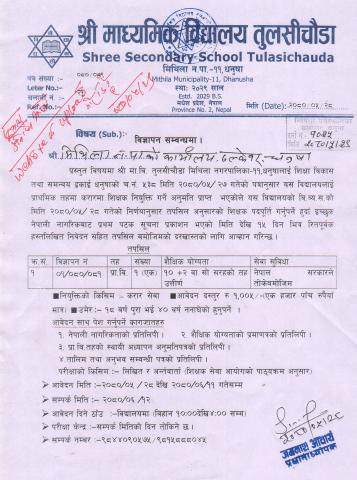 श्री माध्यमिक विद्यालय तुलसीचौडा
Shree Secondary School Tulasichauda
मिथिला न.पा.-११, धनुषा
Mithila Municipality-11, Dhanusha
स्था: २०२९ साल
Estd. 2029 B.S.
मधेश प्रदेश, नेपाल
Province No. 2, Nepal
पत्र संख्या :- ०८०/०८१
Leter No.:-
चलानी नं. :-
Ref. No.:-
मिति (Date): २०८०/०५/२८
विषय (Sub.):-
विज्ञापन सम्बन्धमा ।
श्री मिथिला न.पा.को कार्यालय, ढल्केवर, धनुषा
प्रस्तुत विषयमा श्री मा.वि. तुलसीचौडा मिथिला नगरपालिका-११,धनुषालाई शिक्षा विकास
तथा समन्वय इकाई धनुषाको च.नं. ४३८ मिति २०८०/०५/२७ गतेको पत्रानुसार यस विद्यालयलाई
प्राथमिक तहमा करारमा शिक्षक नियुक्ति गर्ने अनुमति प्राप्त भएकोले यस विद्यालयको वि.व्य.स.को
मिति २०८०/०५/२८ गतेको निर्णयानुसार तपसिल अनुसारको शिक्षक पदपूर्ति गर्नुपर्ने हुदा इच्छुक
नेपाली नागरिकबाट प्रथम पटक सूचना प्रकाशन भएको मिति देखि १५ दिन भित्र रितपूर्वक
हस्तलिखित निवेदन सहित तपसिल बमोजिमको दरखास्तको लागि आव्हान गरिन्छ ।
तपसिल
क्र.सं. विज्ञापन नं तह संख्या शैक्षिक योग्यता सेवा सुविधा
१ ०१/०८०/०८१ प्रा.वि. १ (एक) १० +२ वा सो सरहको तह उत्तीर्ण नेपाल सरकारले तोकेबमोजिम
■नियुक्तिको किसिम :- करार सेवा ■आवेदन दस्तुर रु १,००५/-(एक हजार पाँच रुपैयाँ
मात्र) ■उमेर:- १८ वर्ष पुरा भई ४० वर्ष ननाघेको हुनुपर्ने ।
आवेदन साथ पेश गर्नुपर्ने कागजातहरु
१. नेपाली नागरिकताको प्रतिलिपी । २. शैक्षिक योग्यताको प्रमाणपत्रको प्रतिलिपी ।
३. प्रा.वि.तहको स्थायी अध्यापन अनुमतिपत्रको प्रतिलिपी ।
४.तालिम तथा अनुभव सम्बन्धी पत्रको प्रतिलिपी ।
परीक्षाको किसिम :- लिखित र अन्तर्वार्ता (शिक्षक सेवा आयोगको पाठ्यक्रम अनुसार)
➢ आवेदन मिति :-२०८०/०५/२८ देखि २०८०/०६/११ गतेसम्म
➢ सम्पर्क मिति :-२०८०/०६/१२
➢ आवेदन दिने ठाँउ :-विद्यालयमा (बिहान १०:००देखि४:०० सम्म)
➢ परीक्षा केन्द्र :-सम्पर्क मितिको दिन तोकिने छ ।
➢ सम्पर्क नम्बर :-९८४४०९०५७५/९८१५८८८०४५
२०८०/०५/२८
प्रधानाध्यापक